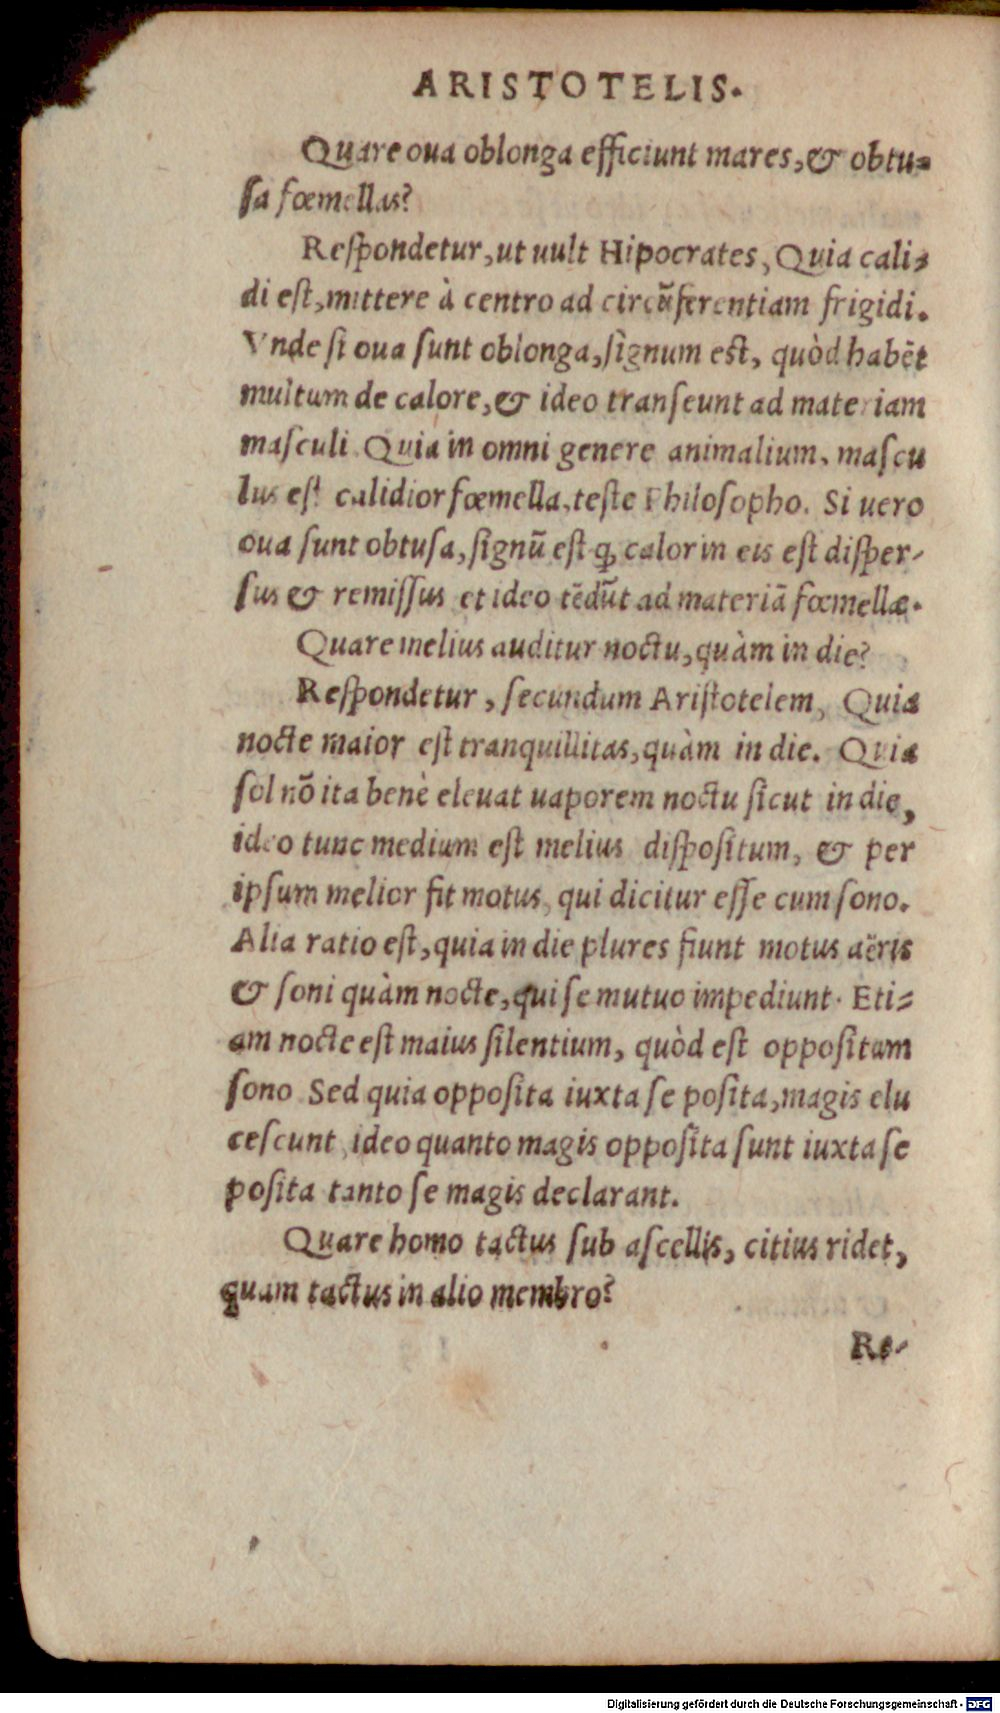 ARISTOTELIS.
Quare oua oblonga efficiunt mares, & obtu-
ſa fœmellas?
Reſpondetur, ut uult Hipocrates, Quia cali-
di eſt, mittere à centro ad circũferentiam frigidi.
Vnde ſi oua ſunt oblonga, ſignum eſt, quòd habẽt
multum de calore, & ideo tranſeunt ad materiam
maſculi. Quia in omni genere animalium, maſcu
lus eſt calidior fœmella, teſte Philoſopho. Si uero
oua ſunt obtuſa, ſignũ eſt ꝙ calor in eis eſt diſper-
ſus & remiſſus et ideo tẽdũt ad materiã fœmellæ.
Quare melius auditur noctu, quàm in die?
Reſpondetur, ſecundum Ariſtotelem, Quia
nocte maior eſt tranquillitas, quàm in die. Quia
ſol nõ ita benè eleuat uaporem noctu ſicut in die,
ideo tunc medium eſt melius diſpoſitum, & per
ipſum melior fit motus, qui dicitur eſſe cum ſono.
Alia ratio eſt, quia in die plures fiunt motus aëris
& ſoni quàm nocte, qui ſe mutuo impediunt. Eti-
am nocte eſt maius ſilentium, quòd eſt oppoſitum
ſono Sed quia oppoſita iuxta ſe poſita, magis elu
ceſcunt, ideo quanto magis oppoſita ſunt iuxta ſe
poſita tanto ſe magis declarant.
Quare homo tactus ſub aſcellis, citius ridet,
quam tactus in alio membro?
Re-
Digitalisierung gefördert durch die Deutsche Forschungsgemeinschaft - DFG